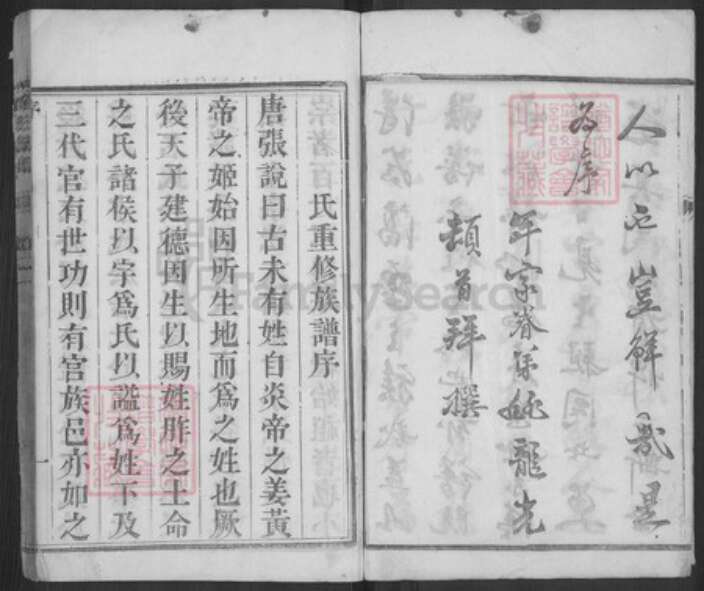 人以已豈鲜哉是
為序
年家眷弟姚龍光
頓首拜撰
氏重修族譜序
唐張說曰古未有姓自炎帝之姜黃
帝之姬始因所生地而為之姓也厥
後天子建德因生以賜姓胙之土命
之氏諸侯以字為氏以謚為姓下及
三代官有世功則有官族邑亦如之
FamilySearch